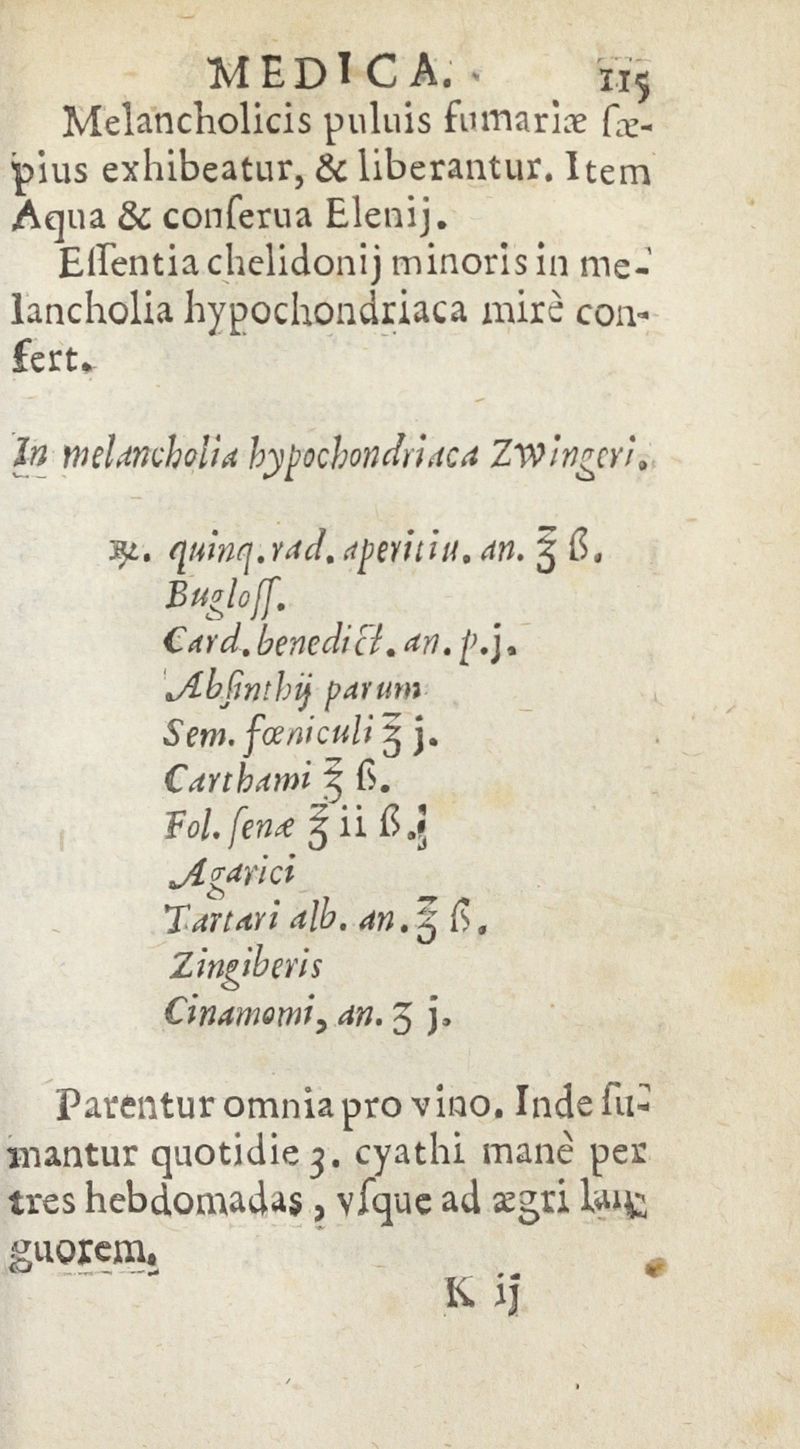 MEDICA. 115
Melancholicis puluis fumariæ ſæ-
pius exhibeatur, & liberantur. Item
Aqua & conſerua Elenij.
Eſſentia chelidonij minoris in me-
lancholia hypochondriaca mirè con-
fert.
In melancholia hypochondriaca ZWingeri.
℞. quinq. rad. aperitiu. an. ℥ ß.
Bugloſſ.
Card. benedict. an. p. j.
Abſinthij parum
Sem. fœniculi ℥ j.
Carthami ℥ ß.
Fol. ſenæ ℥ ii ß.
Agarici
Tartari alb. an. ℥ ß.
Zingiberis
Cinamomi, an. ʒ j.
Parentur omnia pro vino. Inde ſu-
mantur quotidie 3. cyathi manè per
tres hebdomadas, vſque ad ægri lan-
guorem.
K ij